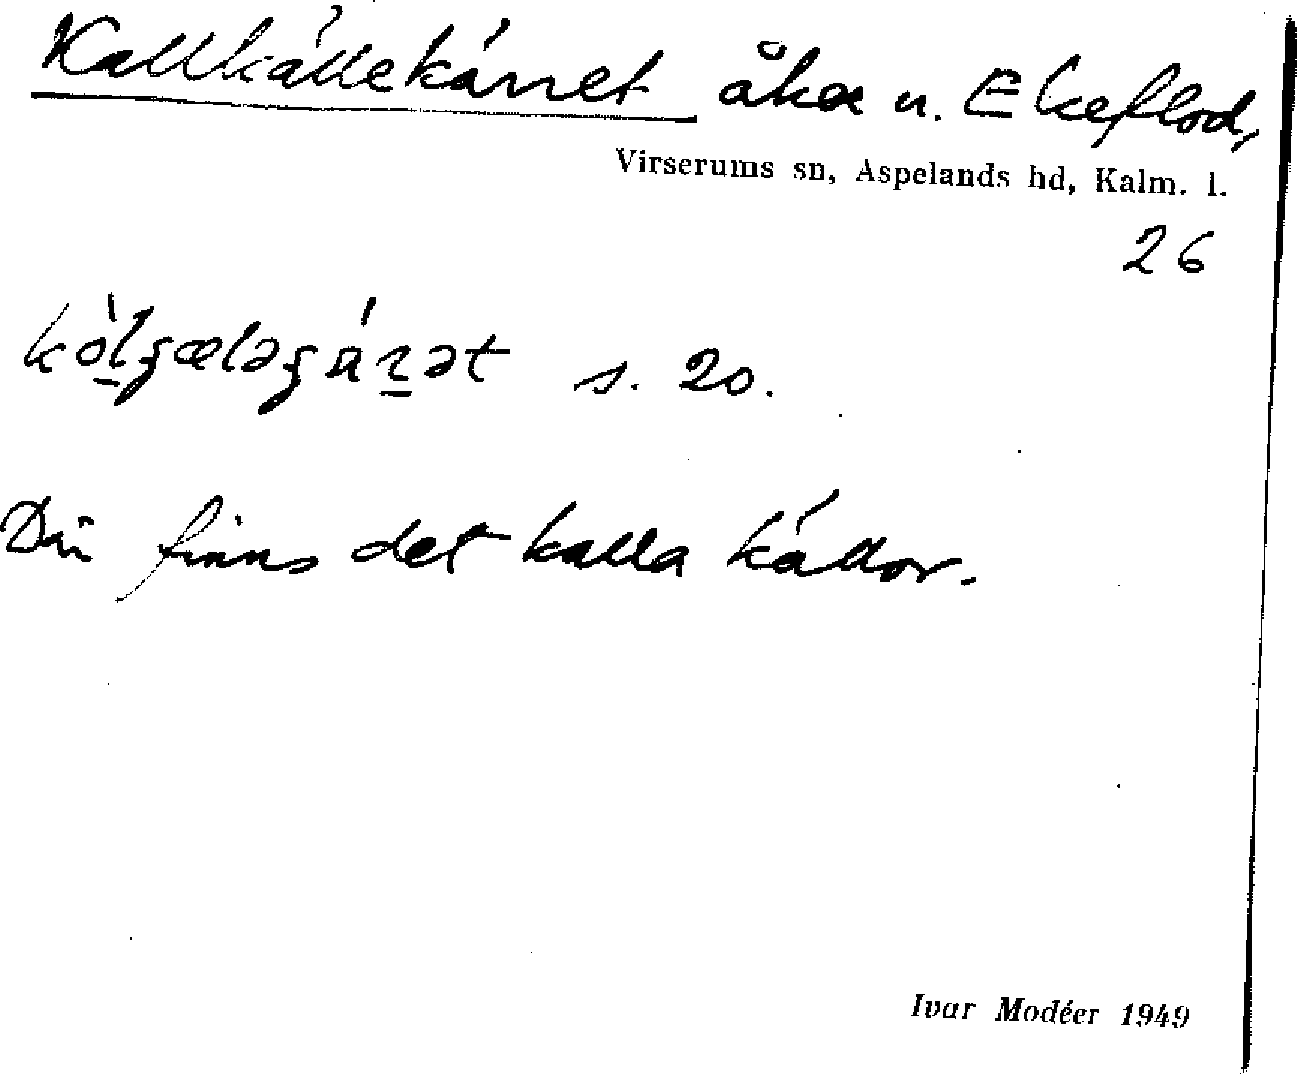 Kallkällekärret åker u. Ekeflod,
Virserums sn, Aspelands hd, Kalm. l.
26
s. 20.
Där finns det kalla källor.
Ivar Modéer 1949